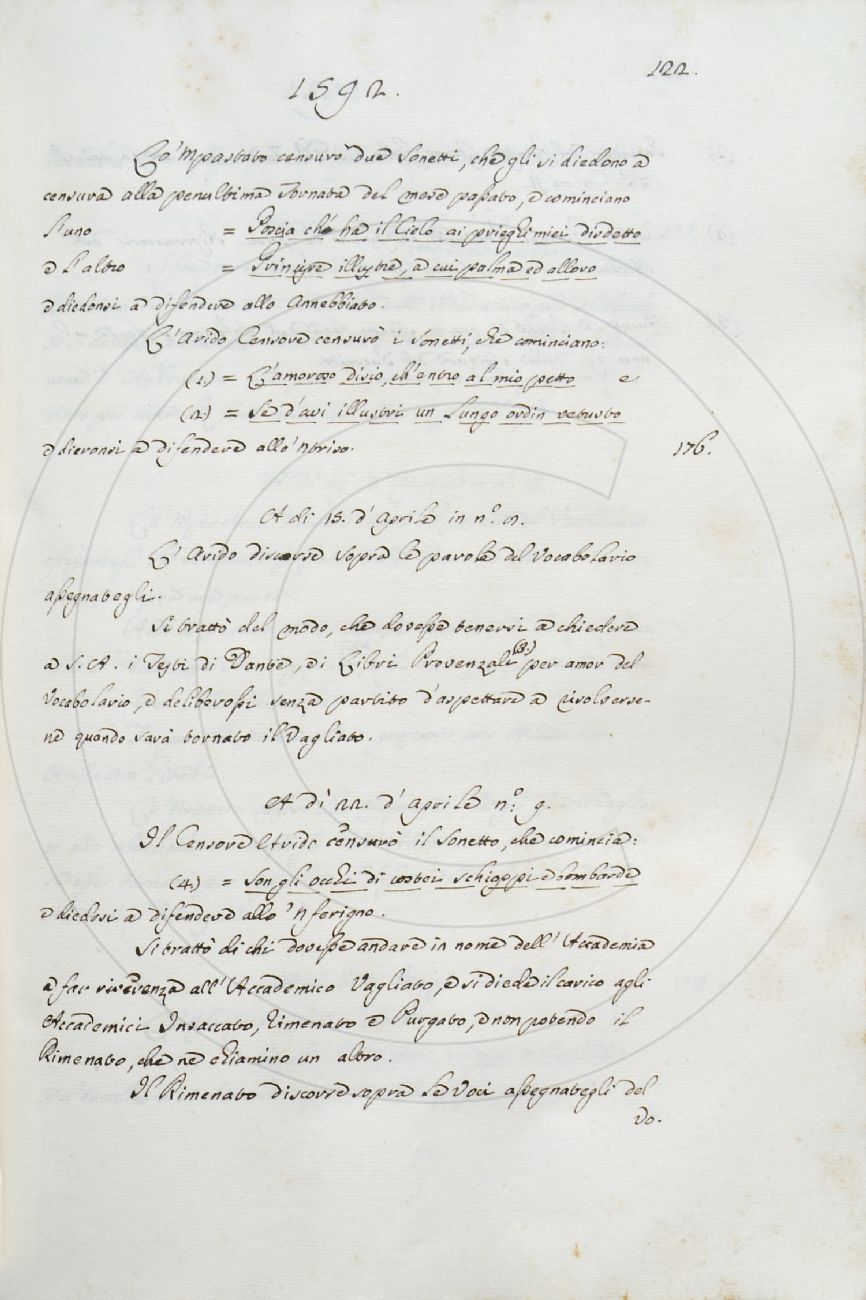 122.
1592.
Lo'Mpastato censurò due Sonetti, che gli si diedono a
censura alla penultima Tornata del mese passato, e cominciano
l'uno = Poscia ché ha il Cielo ai prieghi miei disdetto
e l'altro = Principe illustre, a cui palma ed alloro
e diedonsi a difendere allo Annebbiato.
L'Arido Censore censurò i Sonetti, che cominciano:
(1.) = L'amoroso disio, ch'entro al mio petto e
(2.) = Se d'avi illustri un lungo ordin vetusto
e dieronsi a difendere allo'Ntriso.
176.
A di 15. d'Aprile in n.º
L'Arido discorse sopra le parole del Vocabolario
assegnategli.
Si trattò del modo, che dovesse tenersi a chiedere
a S. A. i Testi di Dante, e i Libri Provenzali (3.) per amor del
Vocabolario, e deliberossi senza partito d'aspettare a risolverse-
ne quando sarà tornato il Vagliato.
A dì 22. d'Aprile n.º 9.
Il Censore Arido censurò il Sonetto, che comincia:
(4.) = Son gli occhi di costei schioppi e bombarde
e diedesi a difendere allo 'Nferigno.
Si trattò di chi dovesse andare in nome dell'Accademia
a far riverenza all'Accademico Vagliato, e si diede il carico agli
Accademici Insaccato, Rimenato e Purgato, e non potendo il
Rimenato, che ne chiamino un altro.
Il Rimenato discorse sopra le Voci assegnategli del
Vo-